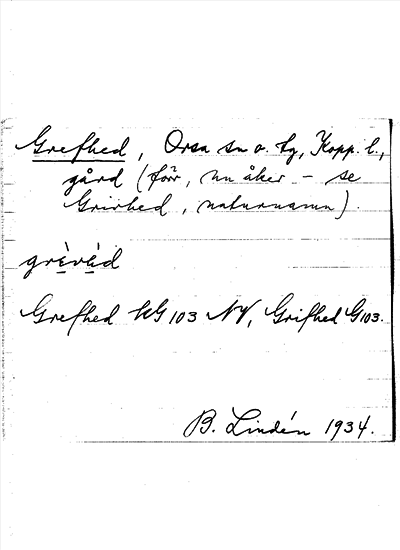 Grefhed, Orsa sn o. tg, Kopp. l.,
gård (förr, nu åker – se
Grivhed, naturnamn).
grèvè́d
Grefhed KG 103 NV, Grifhed G103.
B. Lindén 1934.